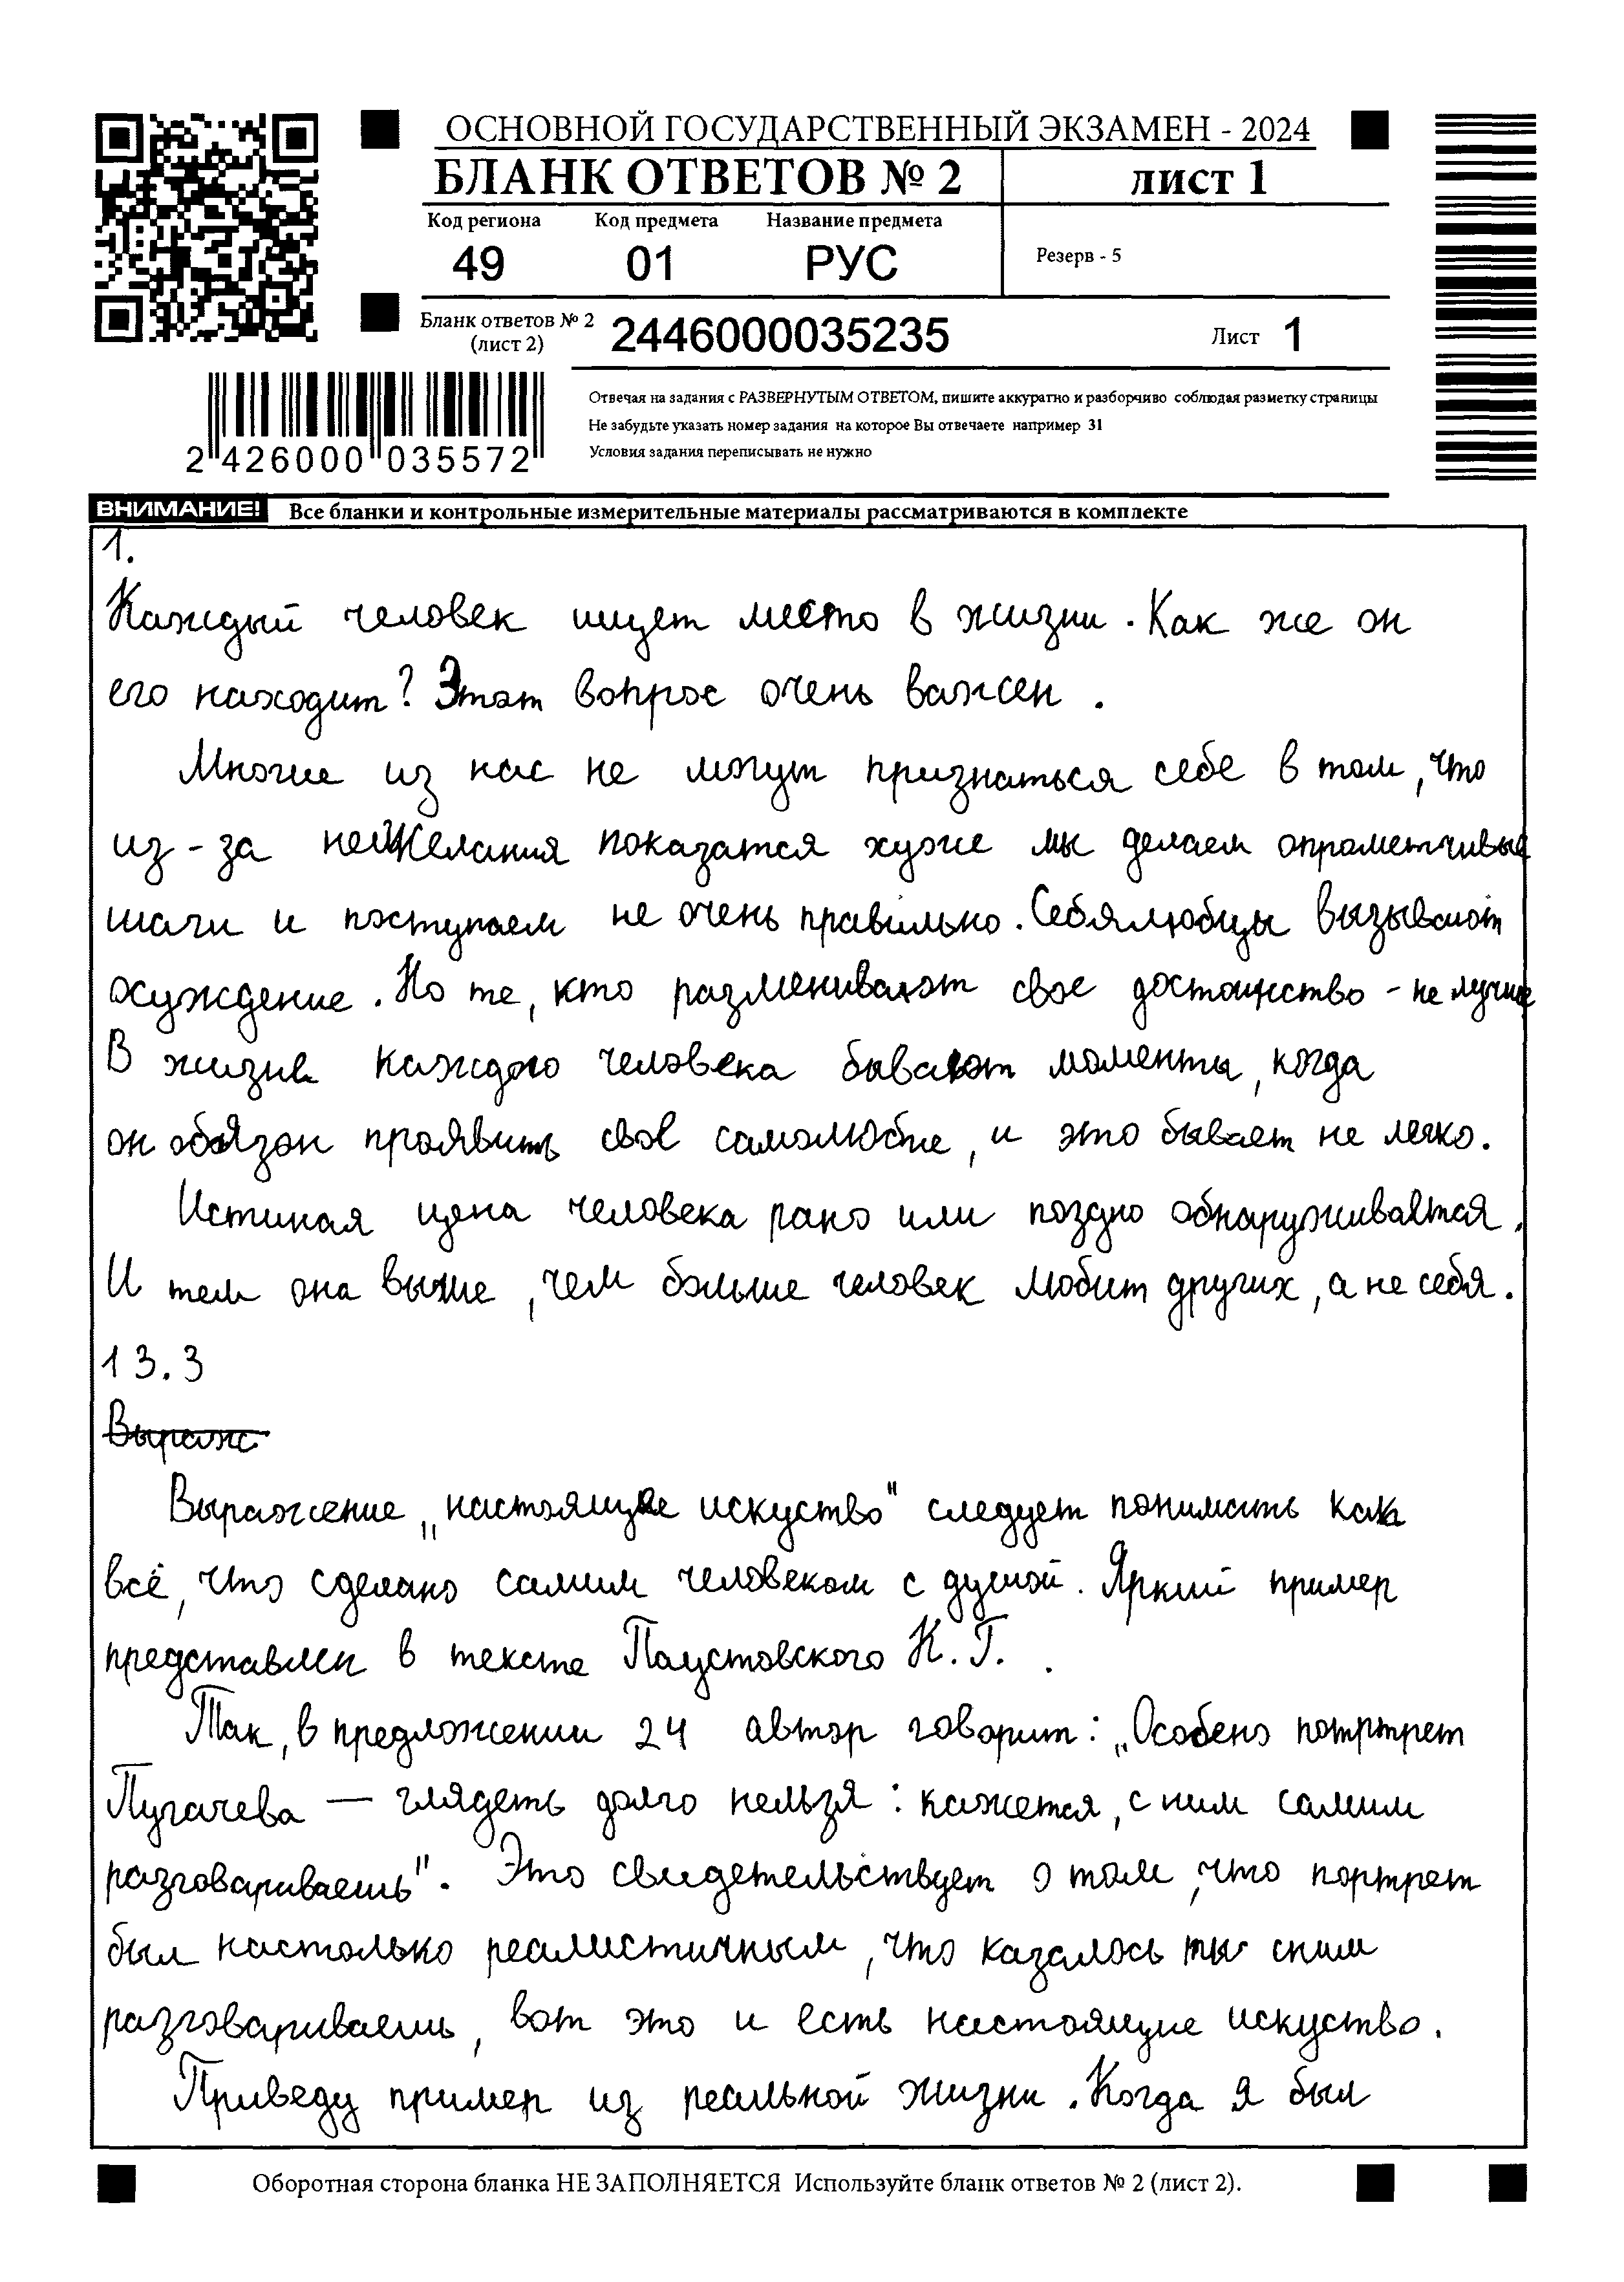 ОСНОВНОЙ ГОСУДАРСТВЕННЫЙ ЭКЗАМЕН - 2024
БЛАНК ОТВЕТОВ № 2 лист 1
Код региона Код предмета Название предмета
49 01 РУС Резерв - 5
Бланк ответов № 2
(лист 2) 2446000035235 Лист 1
Отвечая на задания с РАЗВЕРНУТЫМ ОТВЕТОМ, пишите аккуратно и разборчиво соблюдая разметку страницы
Не забудьте указать номер задания на которое Вы отвечаете например 31
Условия задания переписывать не нужно
2 426000 035572
ВНИМАНИЕ! Все бланки и контрольные измерительные материалы рассматриваются в комплекте
1.
Каждый человек ищет место в жизни. Как же он
его находит? Этот вопрос очень важен.
Многие из нас не могут признаться себе в том, что
из-за нежелания показатся хуже мы делаем опрометчивые
шаги и поступаем не очень правильно. Себялюбцы вызывают
осуждение. Но те, кто разменивают свое достоинство - не лучше
В жизни каждого человека бывают моменты, когда
он обязан проявить своё самолюбие, и это бывает не легко.
Истиная цена человека рано или поздно обнаруживается.
И тем она выше, чем больше человек любит других, а не себя.
13.3
Выраж
Выражение „настоящее искуство" следует понимать как
всё, что сделано самим человеком с душой. Яркий пример
представлен в тексте Паустовского К. Г.
Так, в предложении 24 автор говорит: „Особено потртрет
Пугачева — глядеть долго нельзя: кажется, с ним самим
разговариваешь". Это свидетельствует о том, что портрет
был настолько реалистичным, что казалось ты сним
разговариваешь, вот это и есть настоящие искуство.
Приведу пример из реальной жизни. Когда я был
Оборотная сторона бланка НЕ ЗАПОЛНЯЕТСЯ Используйте бланк ответов № 2 (лист 2).